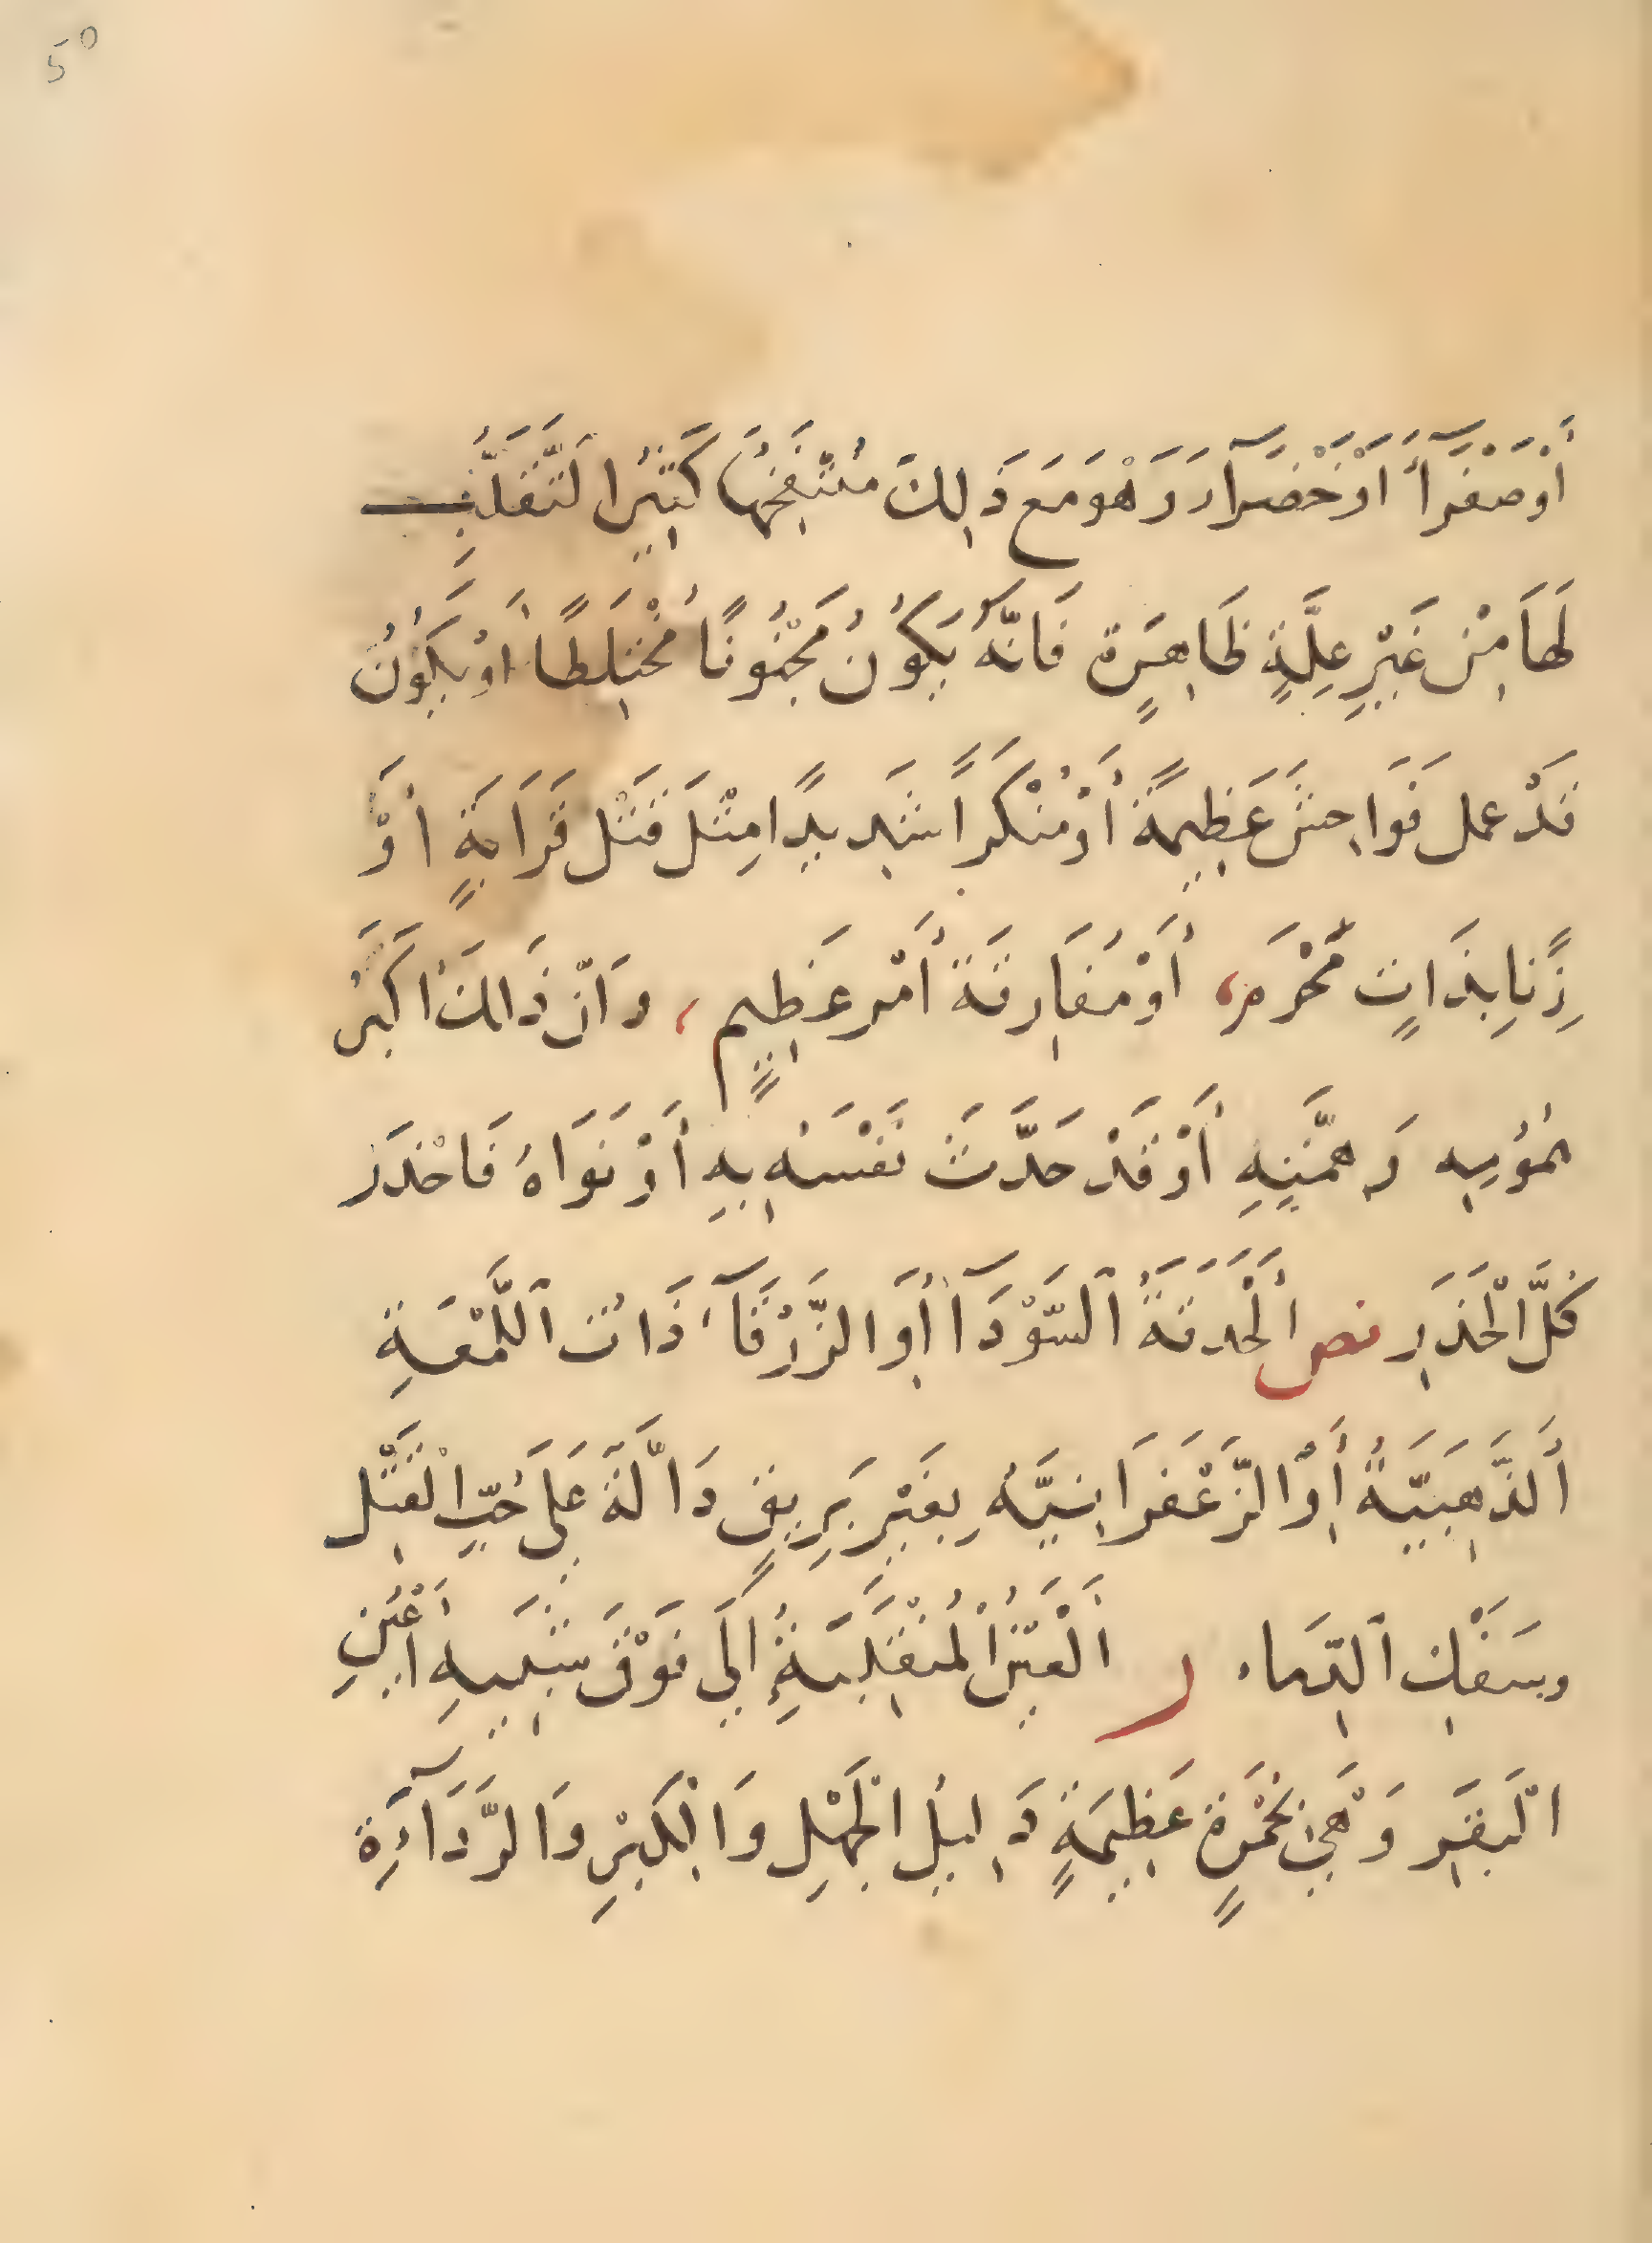 5°
أَوْ صَفْرَآءَ أَوْ خَضْرَآءَ وَهْوَ مَعَ ذَالِكَ مُنْتَفِخُهَا كَثِيْرُ التَّقَلُّبِ
لَهَا مِنْ غَيْرِ عِلَّةٍ ظَاهِرَةٍ فَانَّهُ يَكُوْنُ مَجْنُونًا مُخْتَلِطًا أَوْ يَكُوْنُ
قَدْ عمل فَوَاحِشَ عَظِيمَةً أَوْ مُنْكَراً شَدِيدًا مِثْلَ قَتْل قَرَابَةٍ أَوْ
زِنًا بِذَاتٍ مَحْرَمٍ، أَوْ مُفَارِقَةَ أَمْر عَظِيمٍ، وَانّ ذَالكَ أَكْبَر
هُمُوْمِهِ وَهِمَّتِهِ أَوْ قَدْ حَدَّثَ نَفْسَهُ بِهِ أَوْ نَوَاهُ فَاحْذَر
كُلَّ الْحَذَرِ نص اَلْحَدَقَةُ ٱلسَّوْدَآءُ أَوِ الزَّرْقَآءُ ذَاتُ ٱللُّمْعَةِ
اَلذَّهَبِيَّةُ أَوِ الزَّعْفَرَانِيَّهُ بِغَيْرِ بَرِيقٍ دَالَّةٌ عَلَى حُبِّ الْقَتْل
وسَفْكِ ٱلدِّمَاء ر اَلْعَيْنُ الْمُنْقَلِبَةُ إِلَى فَوْقَ شَبِيهِ أَعْيُنِ
الْبَقَرِ وَهْيَ حُمْرَةٍ عَظِيمَةٍ دَلِيلُ الْجَهْلِ وَالْكِبْرِ وَالرَّدَآءَةِ